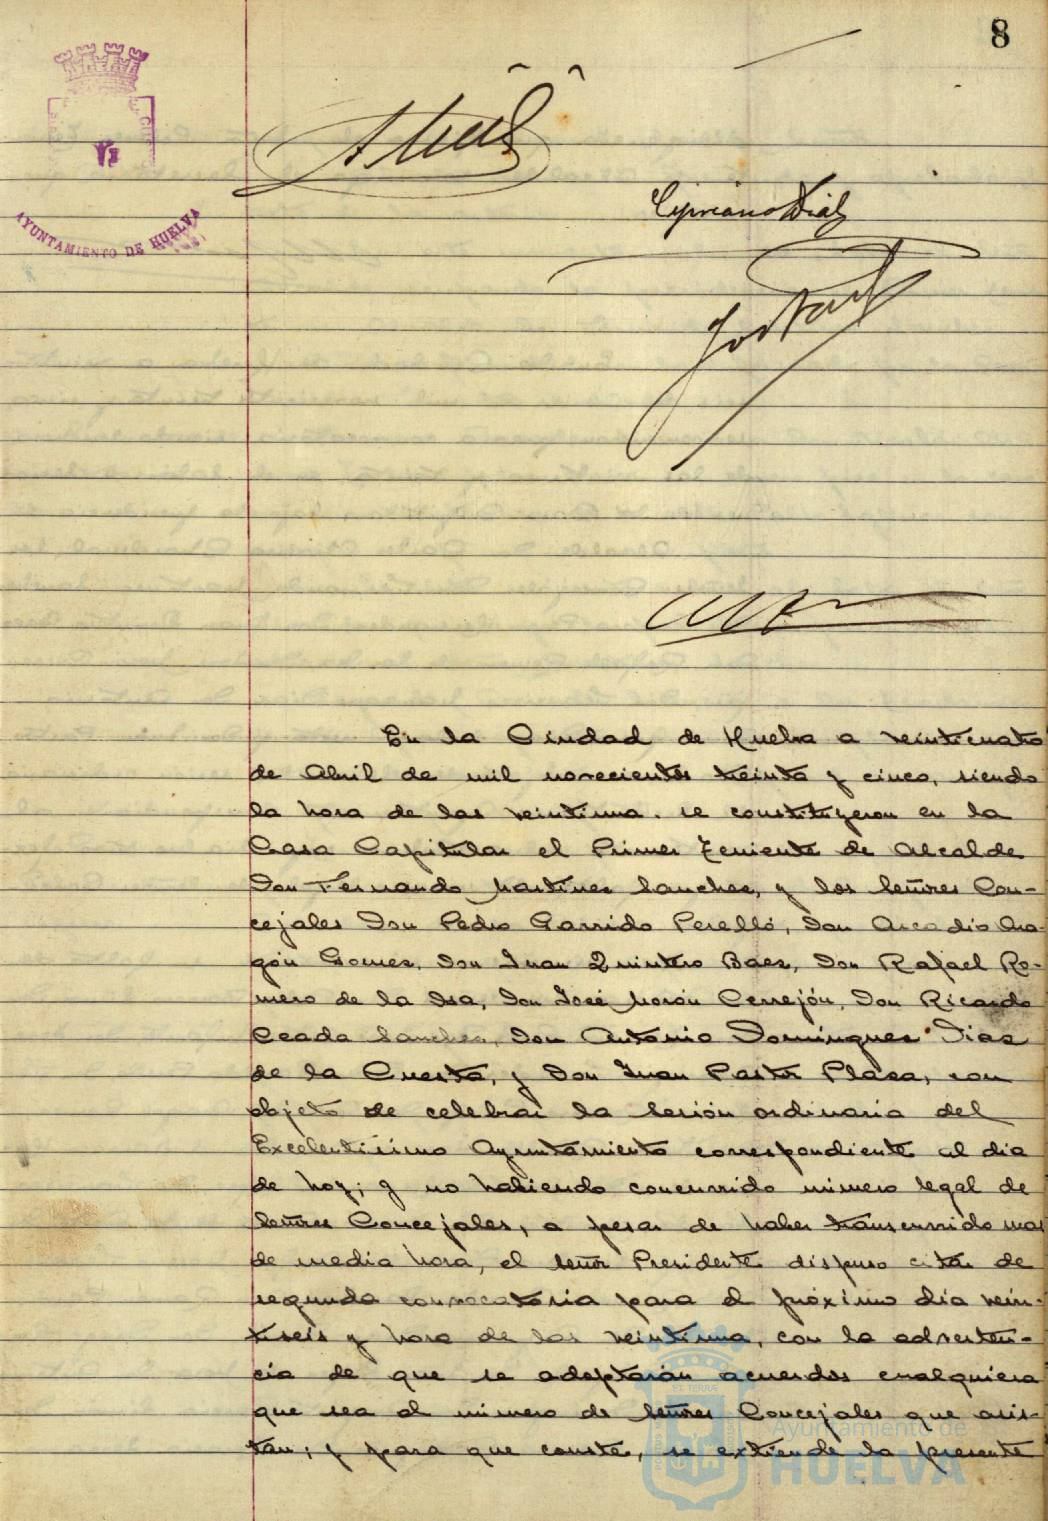 8
AYUNTAMIENTO DE HUELVA
Cipriano Diaz
En la Ciudad de Huelva a veinticuatro
de Abril de mil novecientos treinta y cinco, siendo
la hora de las veintiuna, se constituyeron en la
Casa Capitular el Primer Teniente de Alcalde
Don Fernando Martinez Sanchez, y los señores Con-
cejales Don Pedro Garrido Perelló, Don Arcadio Ara-
gón Gomez, Don Juan Quintero Baez, Don Rafael Ro-
mero de la Osa, Don José Morón Cerrejón, Don Ricardo
Ceada Sanchez, Don Antonio Dominguez Diaz
de la Cuesta, y Don Juan Pastor Plaza, con
objeto de celebrar la sesión ordinaria del
Excelentisimo Ayuntamiento correspondiente al dia
de hoy; y no habiendo concurrido número legal de
señores Concejales, a pesar de haber transcurrido mas
de media hora, el señor Presidente dispuso citar de
segunda convocatoria para el próximo dia vein-
tiseis y hora de las veintiuna, con la adverten-
cia de que se adoptarán acuerdos cualquiera
que sea el número de señores Concejales que asis-
tan; y para que conste, se extiende la presente
Ayuntamiento de
HUELVA